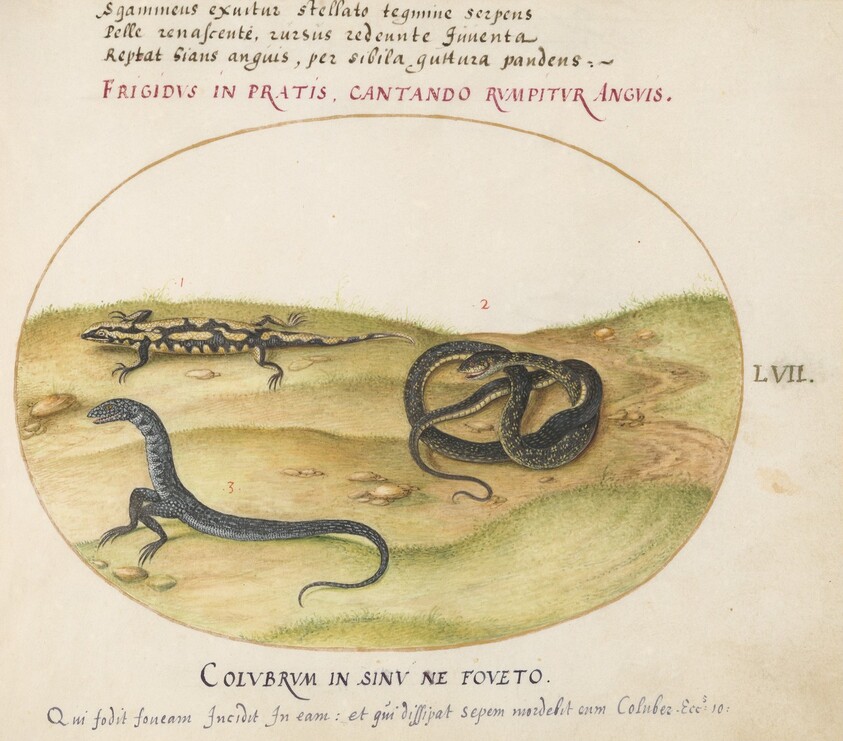 Sgammeus exuitur stellato tegmine serpens
Pelle renascente, rursus redeunte Iuuenta
Reptat hians anguis, per sibila guttura pandens :~
FRIGIDVS IN PRATIS, CANTANDO RVMPITVR ANGVIS.
1
2
LVII.
3
COLVBRVM IN SINV NE FOVETO.
Qui fodit foueam Incidit In eam: et qui dissipat sepem mordebit eum Coluber. Eccs: 10: